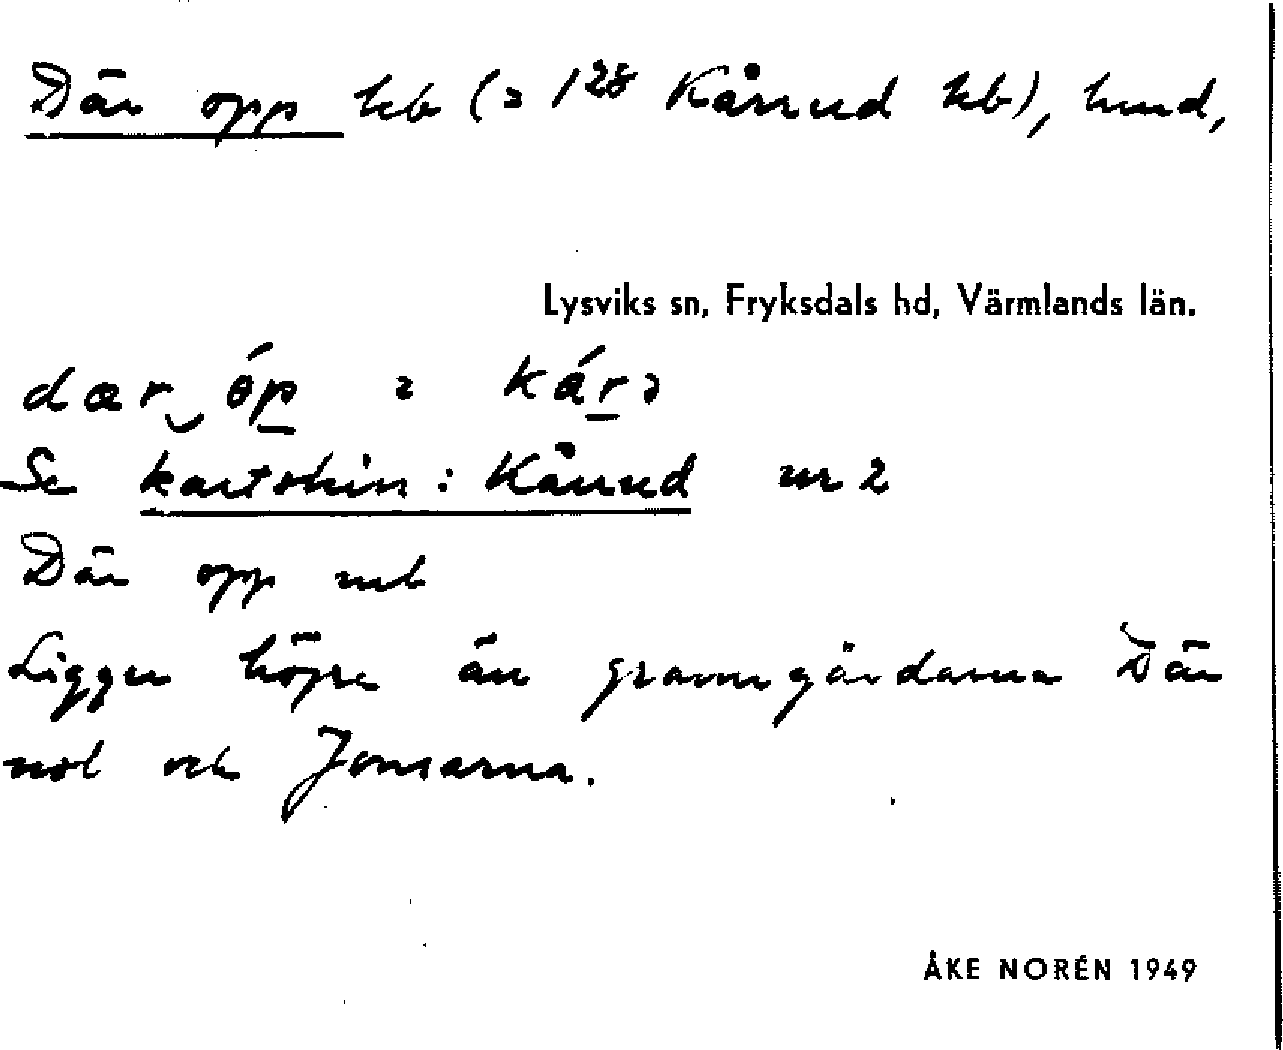 Där opp hb (= 1²⁸ Kårrud hb), hmd,
Lysviks sn, Fryksdals hd, Värmlands län.
dær óp i kárə
Se kartskiss: Kårrud nr 2
Där opp nb
Ligger högre än granngårdarna Där
nol och Jonsarna.
ÅKE NORÉN 1949